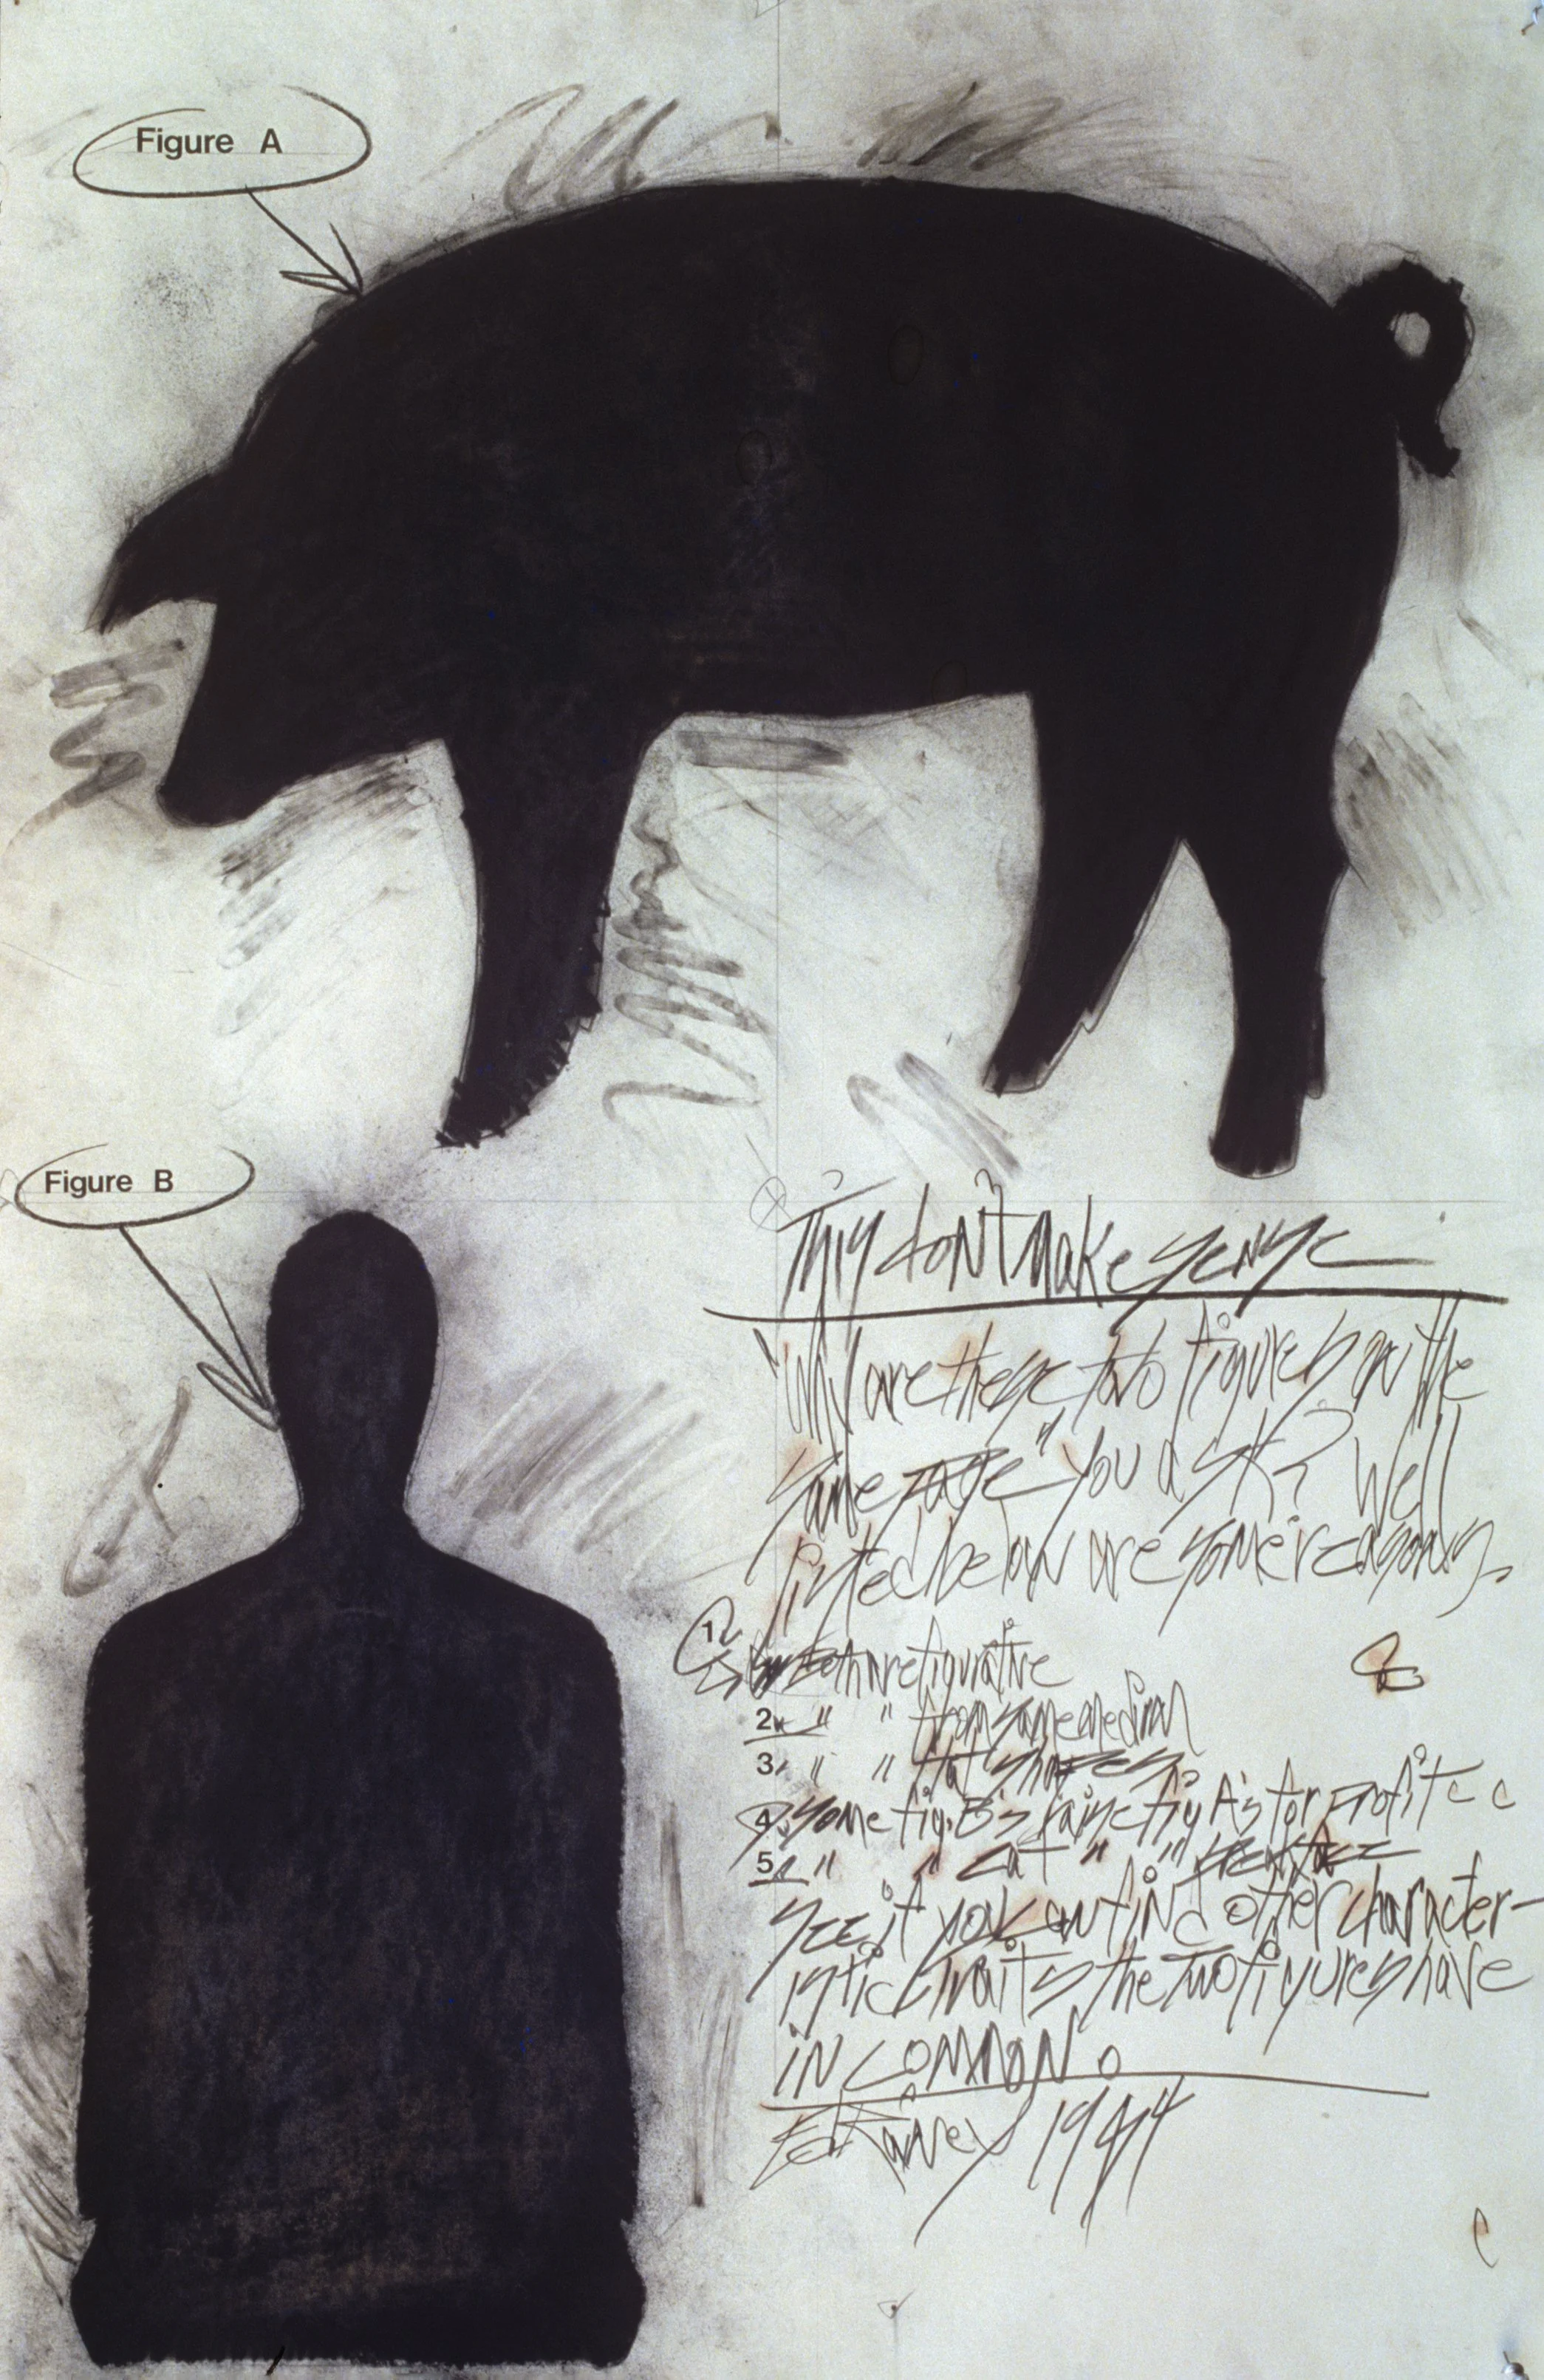 Figure A
Figure B
This don't make sense
"Why are these two figures on the
same page" you ask? Well
listed below are some reasons.
1. Both are figurative
2. " " from same medium
3. " " flat shapes
4. some fig. B's raise fig A's for profit
5. " " eat " "
See if you can find other character-
istic traits the two figures have
in common.
Ed Rainey